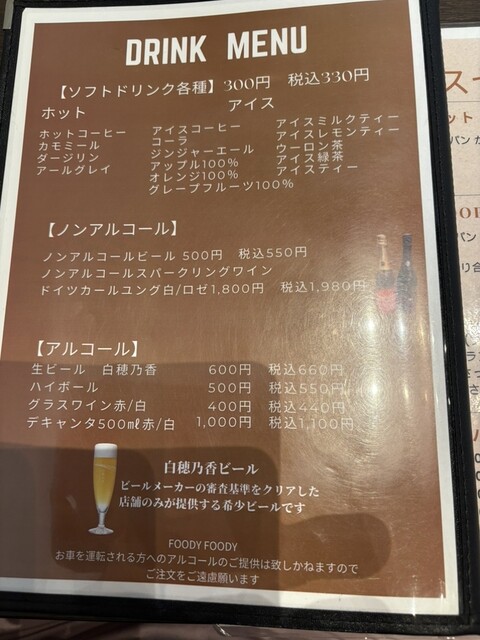 DRINK MENU
【ソフトドリンク各種】300円 税込330円
ホット アイス
ホットコーヒー アイスコーヒー アイスミルクティー
カモミール コーラ アイスレモンティー
ダージリン ジンジャーエール ウーロン茶
アールグレイ アップル100% アイス緑茶
オレンジ100% アイスティー
グレープフルーツ100%
【ノンアルコール】
ノンアルコールビール 500円 税込550円
ノンアルコールスパークリングワイン
ドイツカールユング白/ロゼ1,800円 税込1,980円
【アルコール】
生ビール 白穂乃香 600円 税込660円
ハイボール 500円 税込550円
グラスワイン赤/白 400円 税込440円
デキャンタ500㎖赤/白 1,000円 税込1,100円
白穂乃香ビール
ビールメーカーの審査基準をクリアした
店舗のみが提供する希少ビールです
FOODY FOODY
お車を運転される方へのアルコールのご提供は致しかねますので
ご注文をご遠慮願います